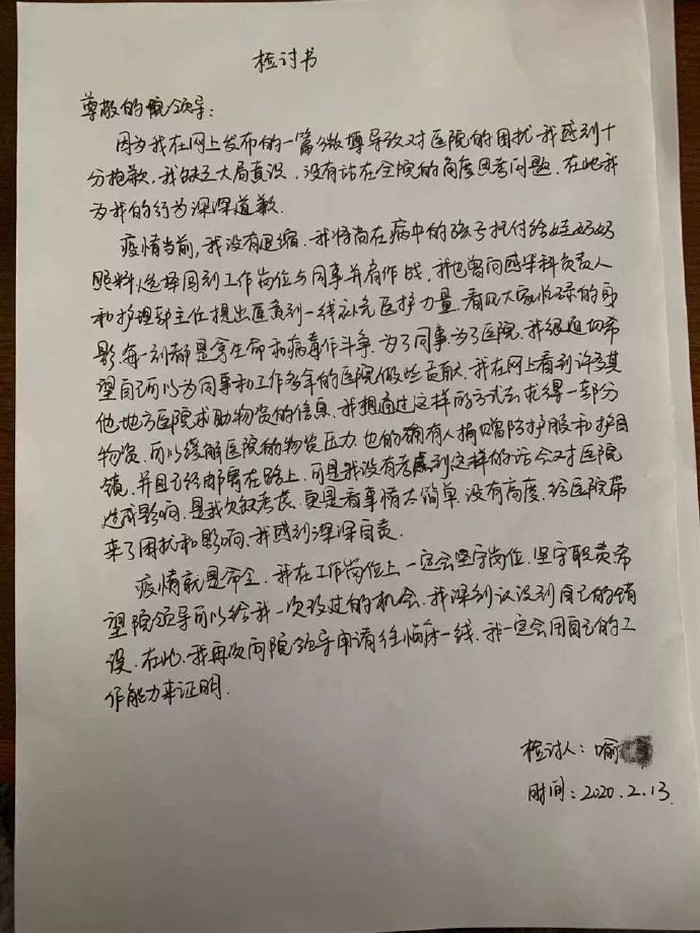 检讨书
尊敬的院领导:
因为我在网上发布的一篇微博导致对医院的困扰.我感到十
分抱歉.我缺乏大局意识.没有站在全院的角度思考问题.在此我
为我的行为深深道歉.
疫情当前,我没有退缩.我将尚在病中的孩子托付给娃奶奶
照料,选择回到工作岗位与同事并肩作战,我也曾向感染科负责人
和护理部主任提出医责到一线补充医护力量.看见大家忙碌的身
影,每一刻都是拿生命和病毒作斗争.为了同事.为了医院.我很迫切希
望自己可以为同事和工作多年的医院做些贡献.我在网上看到许多其
他地方医院求助物资的信息.我想通过这样的方式去求得一部分
物资.可以缓解医院的物资压力.也的确有人捐赠防护服和护目
镜,并且已经邮寄在路上.可是我没有考虑到这样的话会对医院
造成影响.是我欠缺考虑.更是看事情太简单.没有高度.给医院带
来了困扰和影响.我感到深深自责.
疫情就是命令.我在工作岗位上一定会坚守岗位.坚守职责.希
望院领导可以给我一次改过的机会.我深刻认识到自己的错
误.在此.我再次向院领导申请往临床一线.我一定会用自己的工
作能力来证明.
检讨人:喻
时间:2020.2.13.